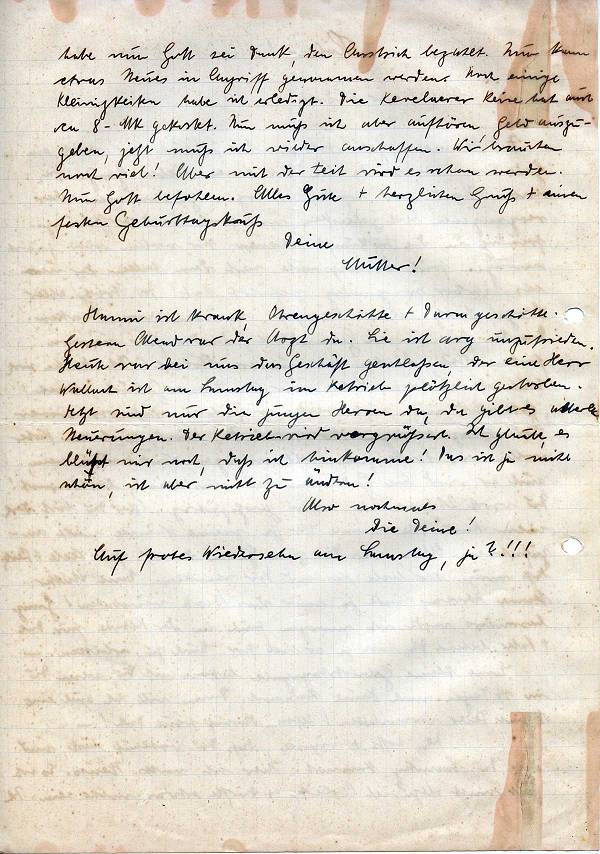 habe nun Gott sei Dank, den Anstrich bezahlt. Nun kann
etwas Neues in Angriff genommen werden. Noch einige
Kleinigkeiten habe ich erledigt. Die Kevelaerer Reise hat auch
ca 8.- MK gekostet. Nun muß ich aber aufhören, Geld auszu-
geben, jetzt muß ich wieder anschaffen. Wir brauchen
noch viel! Aber mit der Zeit wird es schon werden.
Nun Gott befohlen. Alles Gute + herzlichen Gruß + einen
festen Geburtstagskuß
Deine
Mutter!
ist krank, Ohrengeschichte + Darmgeschichte.
Gestern Abend war der Arzt da. Sie ist arg unzufrieden.
Heute war bei uns das Geschäft geschlossen, der eine Herr
Wallach ist am Samstag im Betrieb plötzlich gestorben.
Jetzt sind nur die jungen Herren da, da gibt es allerlei
Neuerungen. Der Betrieb wird vergrößert. Ich glaube, es
blüht mir noch, daß ich hinkomme! Das ist ja nicht
schön, ist aber nicht zu ändern!
Also nochmals
die Deine!
Auf frohes Wiedersehn am Samstag, ja?!!!